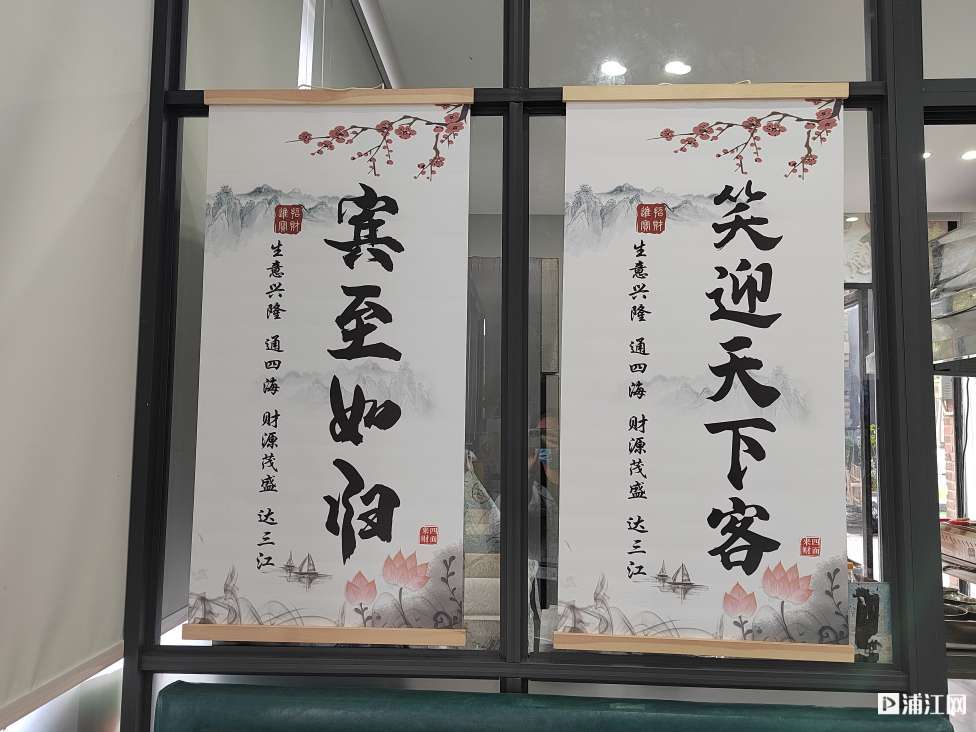 宾至如归
招财进宝
生意兴隆 通四海 财源茂盛 达三江
四面来财
笑迎天下客
招财进宝
生意兴隆 通四海 财源茂盛 达三江
四面来财
浦江网